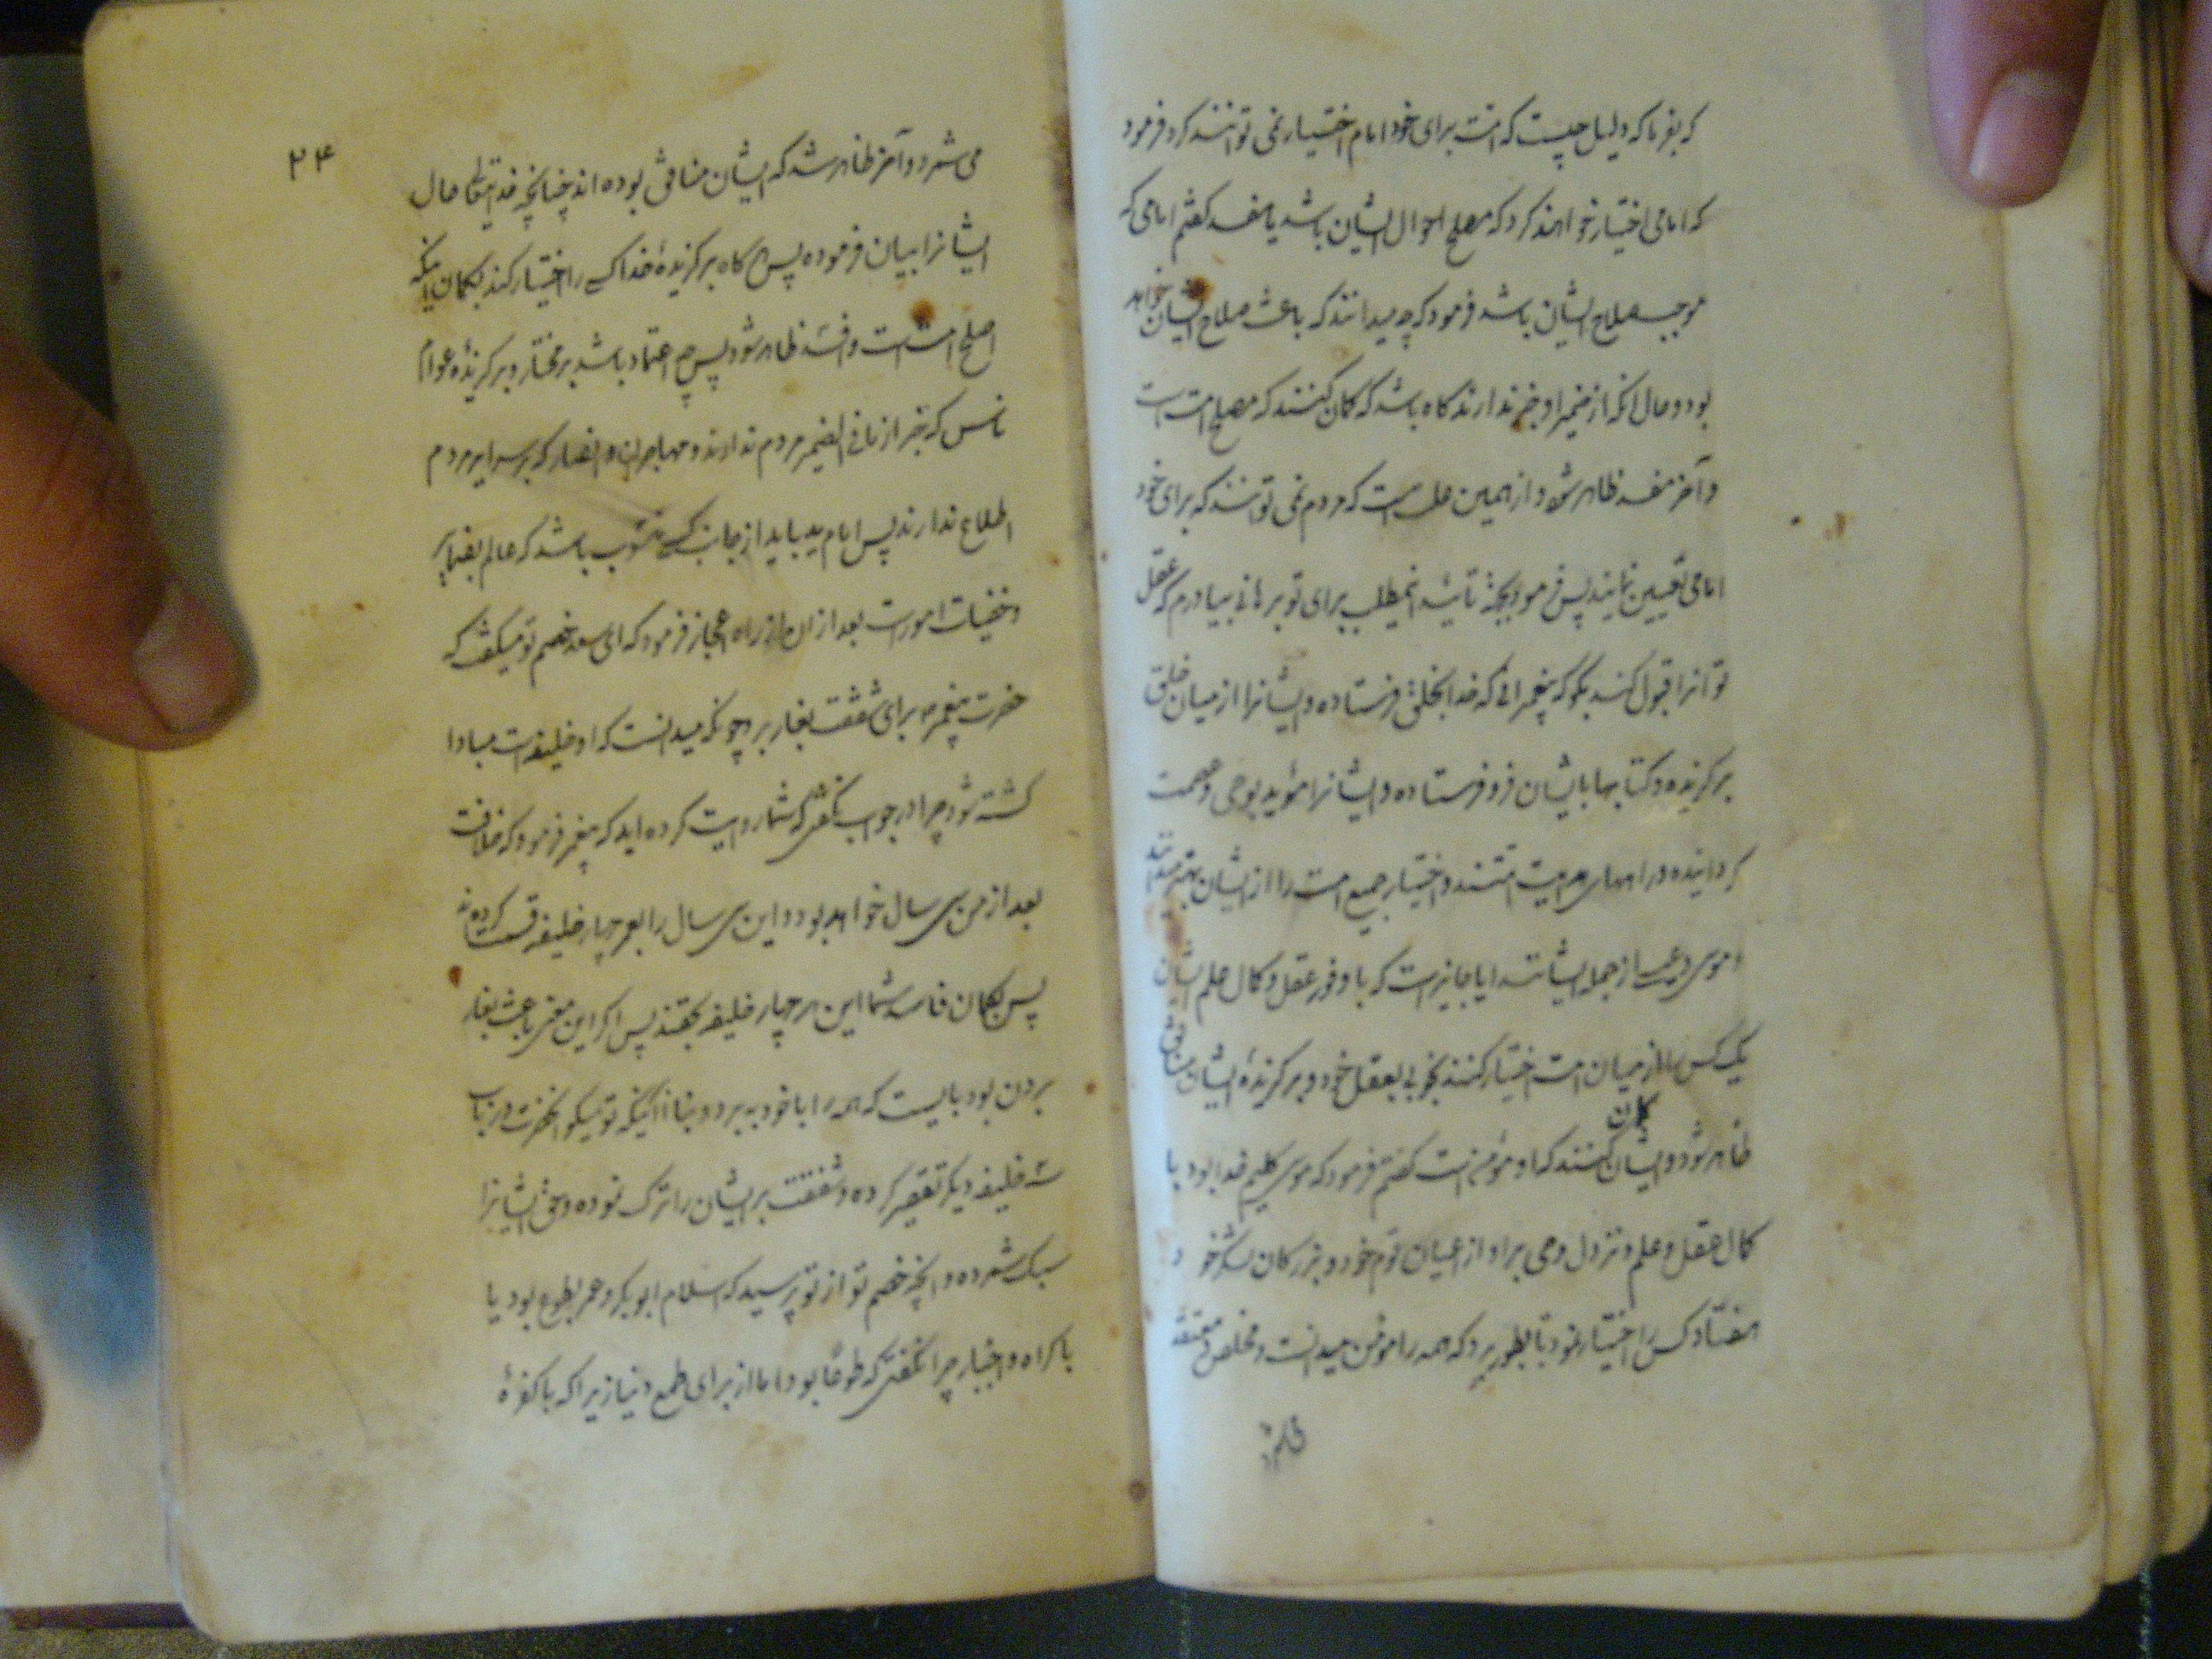 که بفرما که دلیل چیست که امت برای خود امام اختیار نمی توانند کرد فرمود
که امامی اختیار خواهند کرد که مصلح احوال ایشان باشد یا مفسد گفتم امامی که
موجب صلاح ایشان باشد فرمود که چه میدانند که باعث صلاح ایشان خواهد
بود و حال آنکه از ضمیر او خبر ندارند گاه باشد که گمان کنند که مصلح امت است
و آخر مفسد ظاهر شود و از همین علت است که مردم نمی توانند که برای خود
امامی تعیین نمایند پس فرمود بجهة تائید این مطلب برای تو برهانی بیاورم که عقل
تو آنرا قبول کند بگو که پیغمبرانی که خدا بخلق فرستاده و ایشانرا از میان خلق
برگزیده و کتابها بایشان فرو فرستاده و ایشانرا مؤید بوحی و عصمت
گردانیده و راههای هدایت امتند و اختیار جمیع امت را از ایشان بهتر میدانند
و موسی و عیسی از جمله ایشانند ایا جایز است که با وفور عقل و کمال علم ایشان
یک کس را از میان امت اختیار کنند بخوبی بعقل خود و برگزیدهٔ ایشان منافق
ظاهر شود و ایشان گمان کنند که او مؤمن است گفتم نه فرمود که موسی کلیم خدا بود با
کمال عقل و علم و نزول وحی بر او از اعیان قوم خود و بزرگان لشکر خود
هفتاد کس را اختیار نمود تا بطور برد که همه را مؤمن میدانست و مخلص و معتقد
می شمرد و آخر ظاهر شد که ایشان منافق بوده اند چنانچه خدای تعالی حال
ایشانرا بیان فرموده پس هر گاه برگزیدهٔ خدا کسی را اختیار کند بگمان اینکه
اصلح امت است و افسد ظاهر شود پس چه اعتماد باشد بر مختار و برگزیدهٔ عوام
ناس که خبر از ما فی الضمیر مردم ندارند و مهاجران و انصار که بر سرایر مردم
اطلاع ندارند پس امام باید از جانب کسی منصوب باشد که عالم بضمایر
و خفیات امورست بعد از ان از راه اعجاز فرمود که ای سعد خصم تو میگفت که
حضرت پیغمبر ص برای شفقت بغار برد چونکه میدانست که او خلیفه است مبادا
کشته شود چرا در جواب نگفتی که شما روایت کرده اید که پیغمبر فرمود که خلافت
بعد از من سی سال خواهد بود و این سی سال را بعمر چهار خلیفه قسمت کرده اند
پس بگمان فاسد شما این هر چهار خلیفه بحقند پس اگر این معنی باعث بغار
بردن بود بایست که همه را با خود ببرد و بنا بر اینکه تو میگوئی آنحضرت در باب
سه خلیفه دیگر تقصیر کرده و شفقت بر ایشان را ترک نموده و حق ایشانرا
سبک شمرده و آنچه خصم تو از تو پرسید که اسلام ابو بکر و عمر بطوع بود یا
باکراه و اجبار چرا نگفتی که طوعًا بود اما از برای طمع دنیا زیرا که با کفرهٔ
۲۴